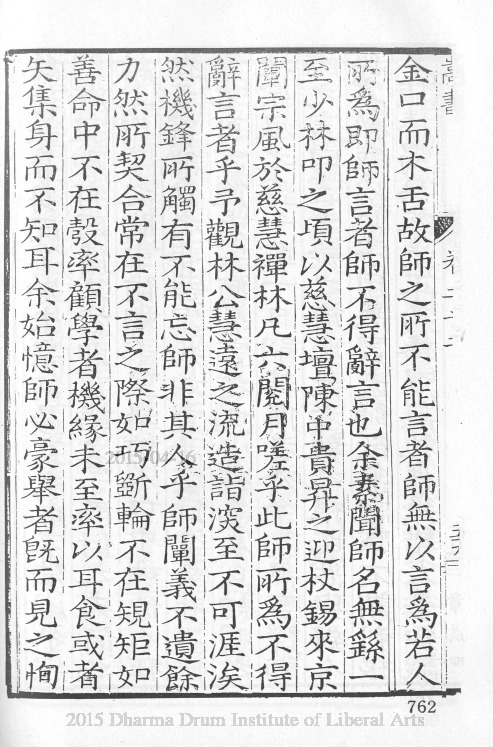 嵩書
卷二十二
金口而木舌故師之所不能言者師無以言爲若人
所爲即師言者師不得辭言也余素聞師名無繇一
至少林叩之頃以慈慧壇陳中貴昇之迎杖錫來京
闡宗風於慈慧禪林凡六閱月嗟乎此師所爲不得
辭言者乎予觀林公慧遠之流造詣淡至不可涯涘
然機鋒所觸有不能忘師非其人乎師闡義不遺餘
力然所契合常在不言之際如巧斵輪不在規矩如
善命中不在彀率顧學者機緣未至率以耳食或者
矢集身而不知耳余始憶師必豪舉者旣而見之恂
762
2015/04/16
2015 Dharma Drum Institute of Liberal Arts